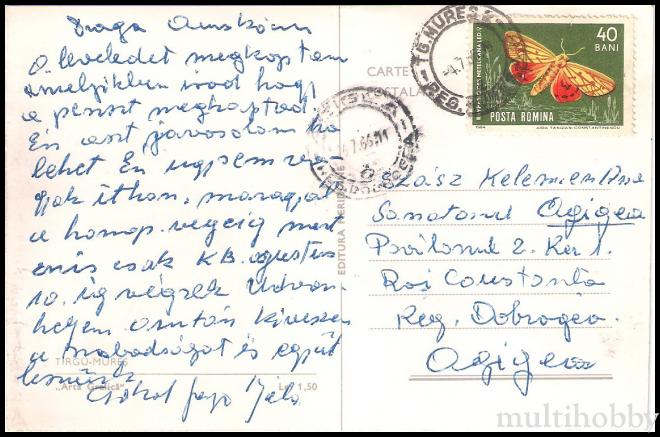 Draga
A leveledet megkaptam
amelyikben irod hogy
a pénzt megkaptad.
Én azt javasolom ha
lehet Én ugysem va-
gyok itthon, maragyál
a honap végeig mert
én is csak KB. agustus
10. ig végzek Udvar-
helyen azután kiveszem
a szabadságot és együt
leszünk
Csokol Béla
TIRGU-MUREŞ
„Arta Grafică” Lei 1,50
EDITURA MERIDIANE
CARTE
POSTALA
TG. MUREŞ
40
BANI
POSTA ROMINA
1964
AIDA TASGIAN-CONSTANTINESCU
Szász Kelemen Tina
Sanatoriul Agigea
Pavilonul 2. Ker 1.
Rai Constanta
Reg. Dobrogea.
Agigea
multihobby